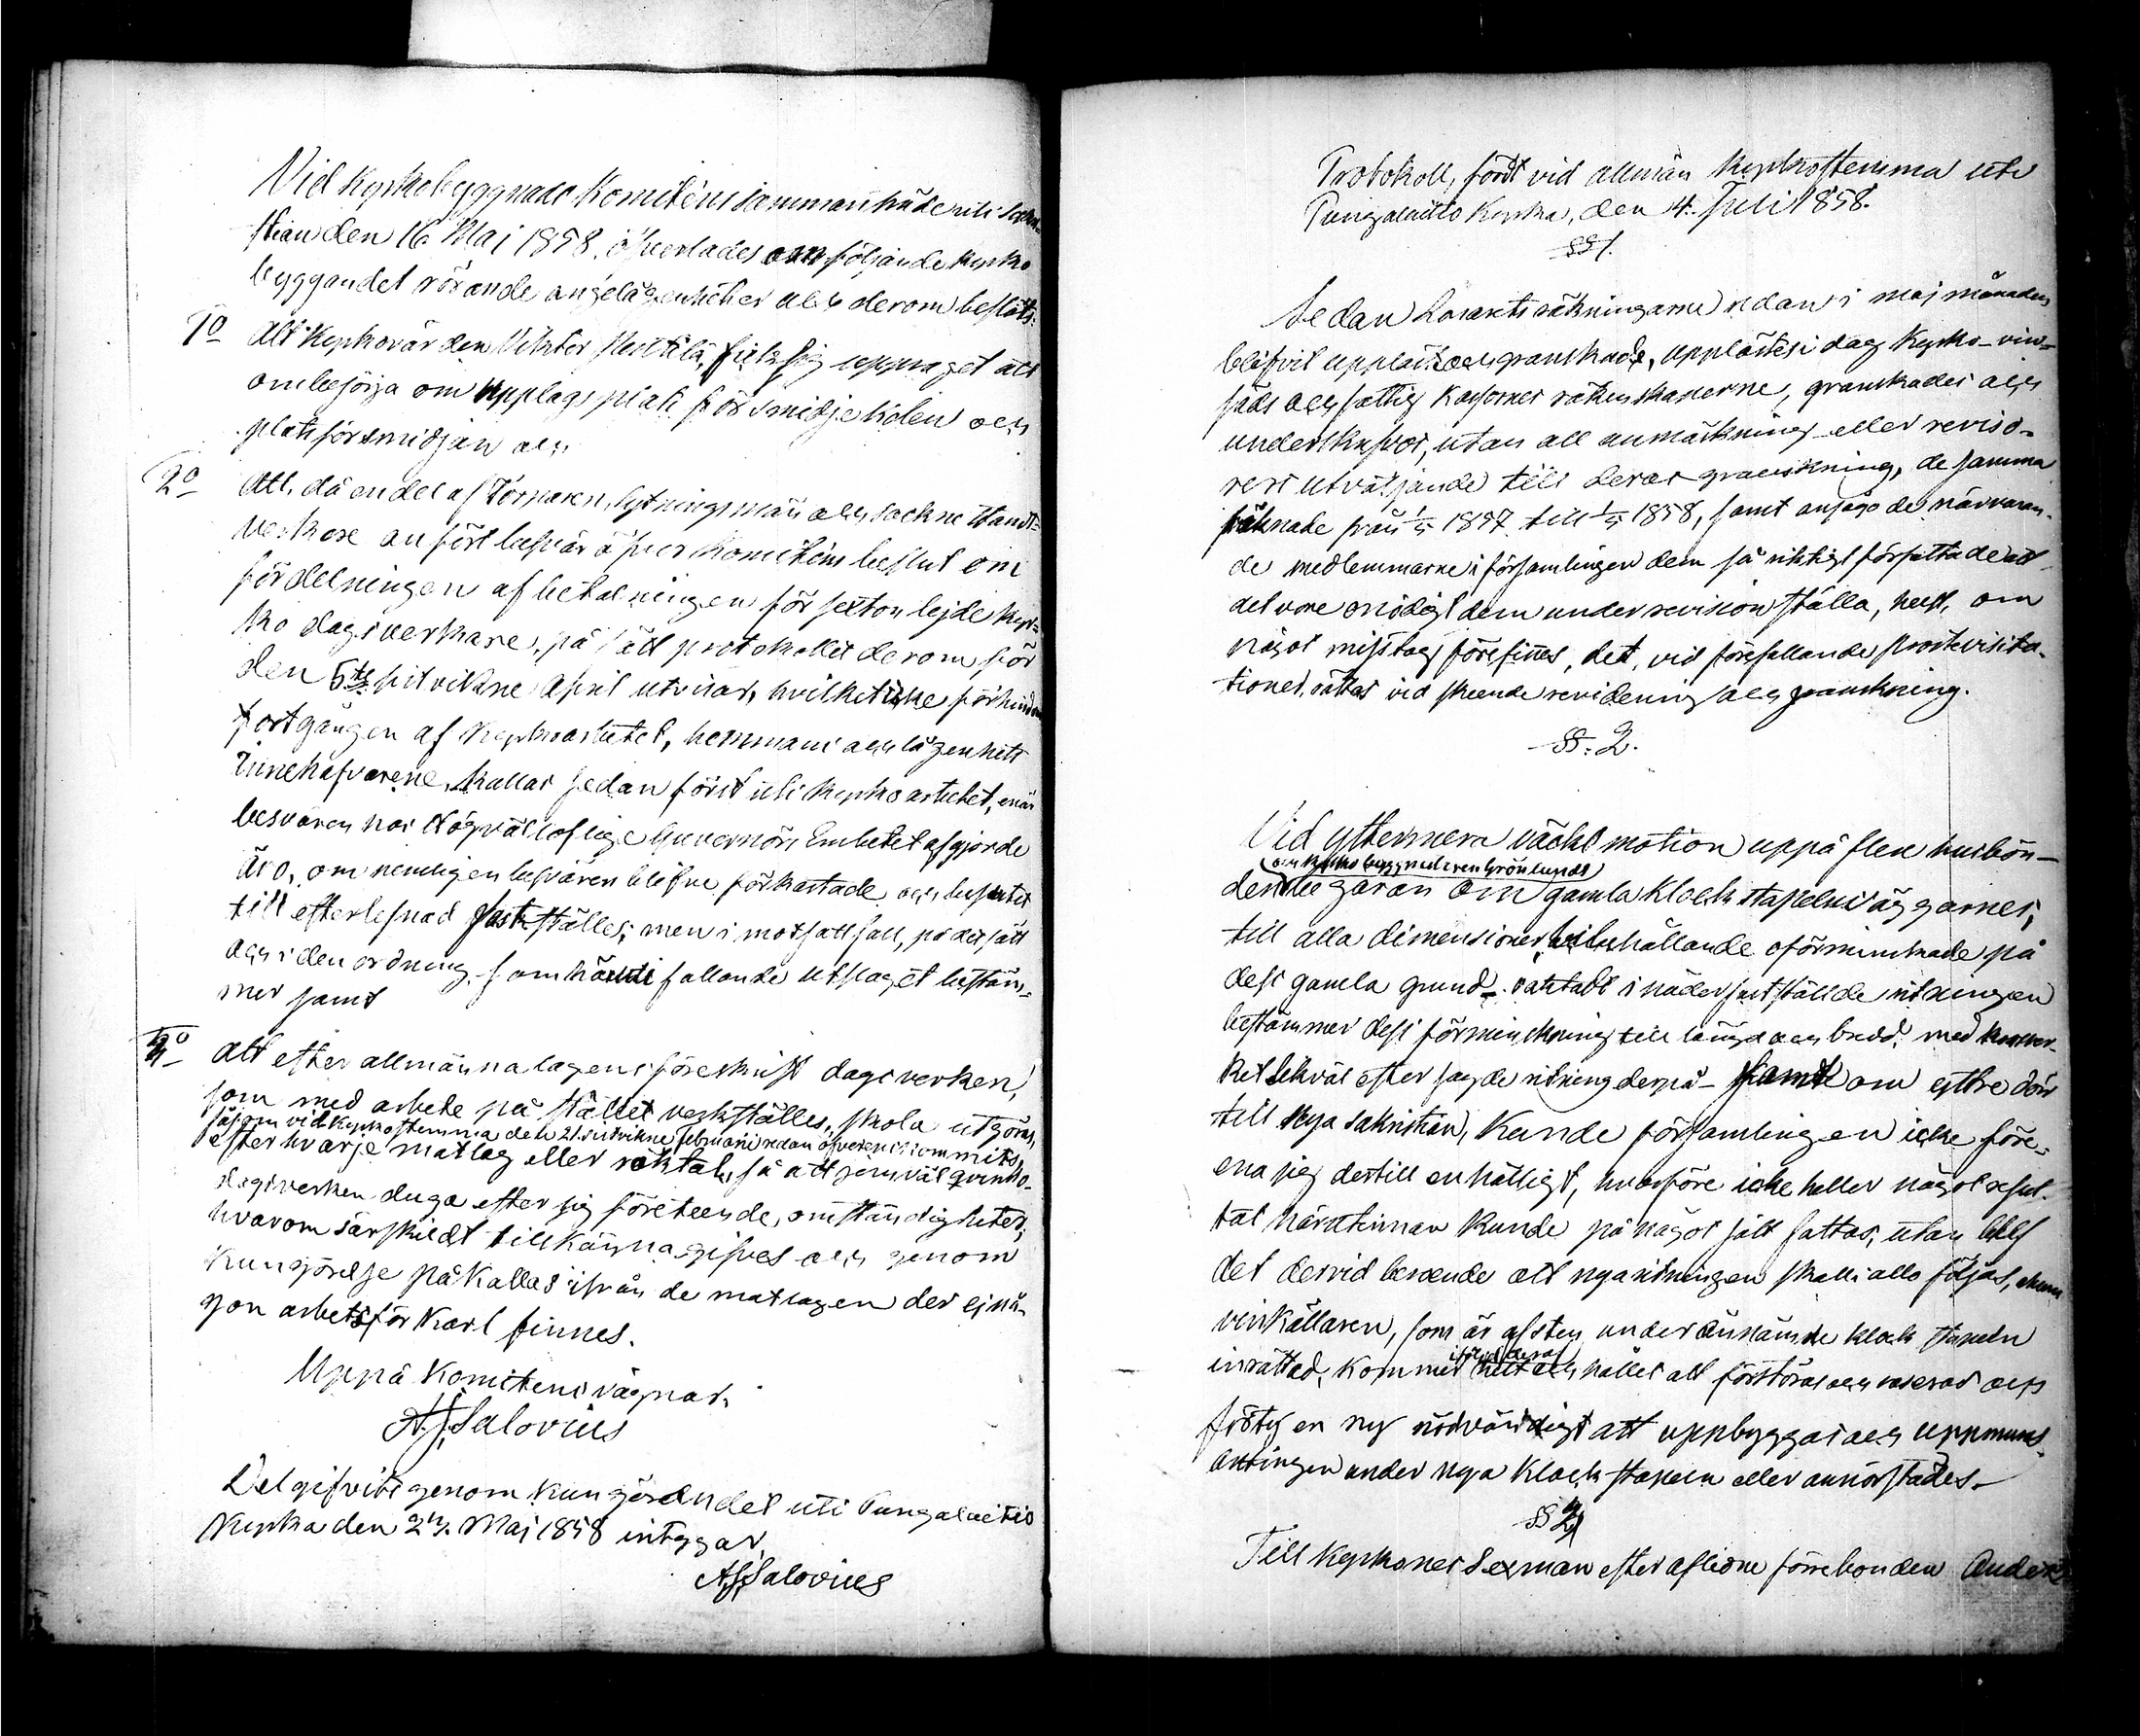 Vid Kyrkobyggnads Komiténs sammanträde uti Sakri-
stian den 16 Maj 1858. öfverlades om följande kyrko
byggandet rörande angelägenheter och derom beslöts:
1o Att Kyrkovärden Viktor Heikkilä, fick sig uppdraget att
ombesörja om upplags plats för smidje kolen och
plats för smidjan och
2o Att, då en del af Torparen, hytningsmän och sockne Handt-
verkare anfört besvär öfver Komiténs beslut om
fördelningen af betalningen för sexton lejde kyr-
ko dagsverkare, på sätt protokollet derom för
den 5te sistvikne April utvisar, hvilket icke förhindra
fortgången af Kyrkoarbetet, hemmans och lägenhets
Innehafvarene, kallas sedan först uti kyrko arbetet, enär
besvären hos Högvälloflige Guvernörs Embetet afgjorde
äro, om nemligen besvären blifva förkastade och beslutet
till efterlefnad fastställes; men i motsatt fall, på det sätt
och i den ordning som händi fallande utslaget bestäm-
mer samt
3o Att efter allmänna lagens föreskrift dagsverken,
som med arbete på stället verkställes, skola utgöras,
såsom vid Kyrkostemma den 21. sistvikne Februari redan öfverenskommits,
efter hvarje matlag eller röktal, så att jemväl qvinho-
dagsverken duga efter sig företeende omständigheter,
hvarom särskildt tillkännagifves och genom
Kungörelse påkallas ifrån de matlagen der ej nå-
gon arbetsför Karl finnes.
Uppå Komitens vägnar:
A. J. Salovius
Delgifvits genom kungörandet uti Pungalaitio
Kyrka den 24. Maj 1858 intygar,
A. J. Salovius
Protokoll, fördt vid allmän Kyrkostemma uti
Pungalaitio Kyrka, den 4. Juli 1858.
§§ 1.
Sedan Lasaretts räkningarne redan i maj månaden
blifvit uppläste och granskade, upplästes i dag Kyrko- vin-
säds och fattig Kassornes räkenskaperne, granskades och
underskrefvos, utan all anmärkning eller reviso-
rers utväljande till deras granskning, de samma
räknade från 1/5 1857 till 1/5 1858, samt ansågo de närvaran-
de medlemmarne i församlingen dem så riktigt författade att
det vore onödigt dem under revision ställa, helst, om
något misstag förefinnes, det, vid förefallande prostvisita-
tioner, rättas vid skeende revidering och granskning.
§§. 2.
Vid yttermera väckt motion uppå flere husbön-
och Kyrko byggmästaren Grönlunds
ders begäran om gamla Klockstapelns väggarnes,
till alla dimensioner, bibehållande oförminskade på
dess gamla grund - oaktadt i nåder fastställde ritningen
bestämmer dess förminskning till längd och bredd, med
likväl efter sagde ritning derpå - samt om yttre dörr
till nya sakristian, kunde församlingen icke före-
ena sig dertill enhälligt, hvarföre icke heller något resul-
tat härutinnan kunde på något sätt fattas, utan blef
det dervid beroende att nya ritningen skall i allo följas, ehuru
vinkällaren, som är af sten under ännämnde klock stapeln
i följd deraf
inrättad, kommer helt och hållet att förstöras och raseras och
således en ny nödvändigt att uppbyggas och uppmuras
antingen under nya Klockstapeln eller annorstädes.
§§ 3
Till Kyrkones Sexman efter aflidne förrebonden Anders